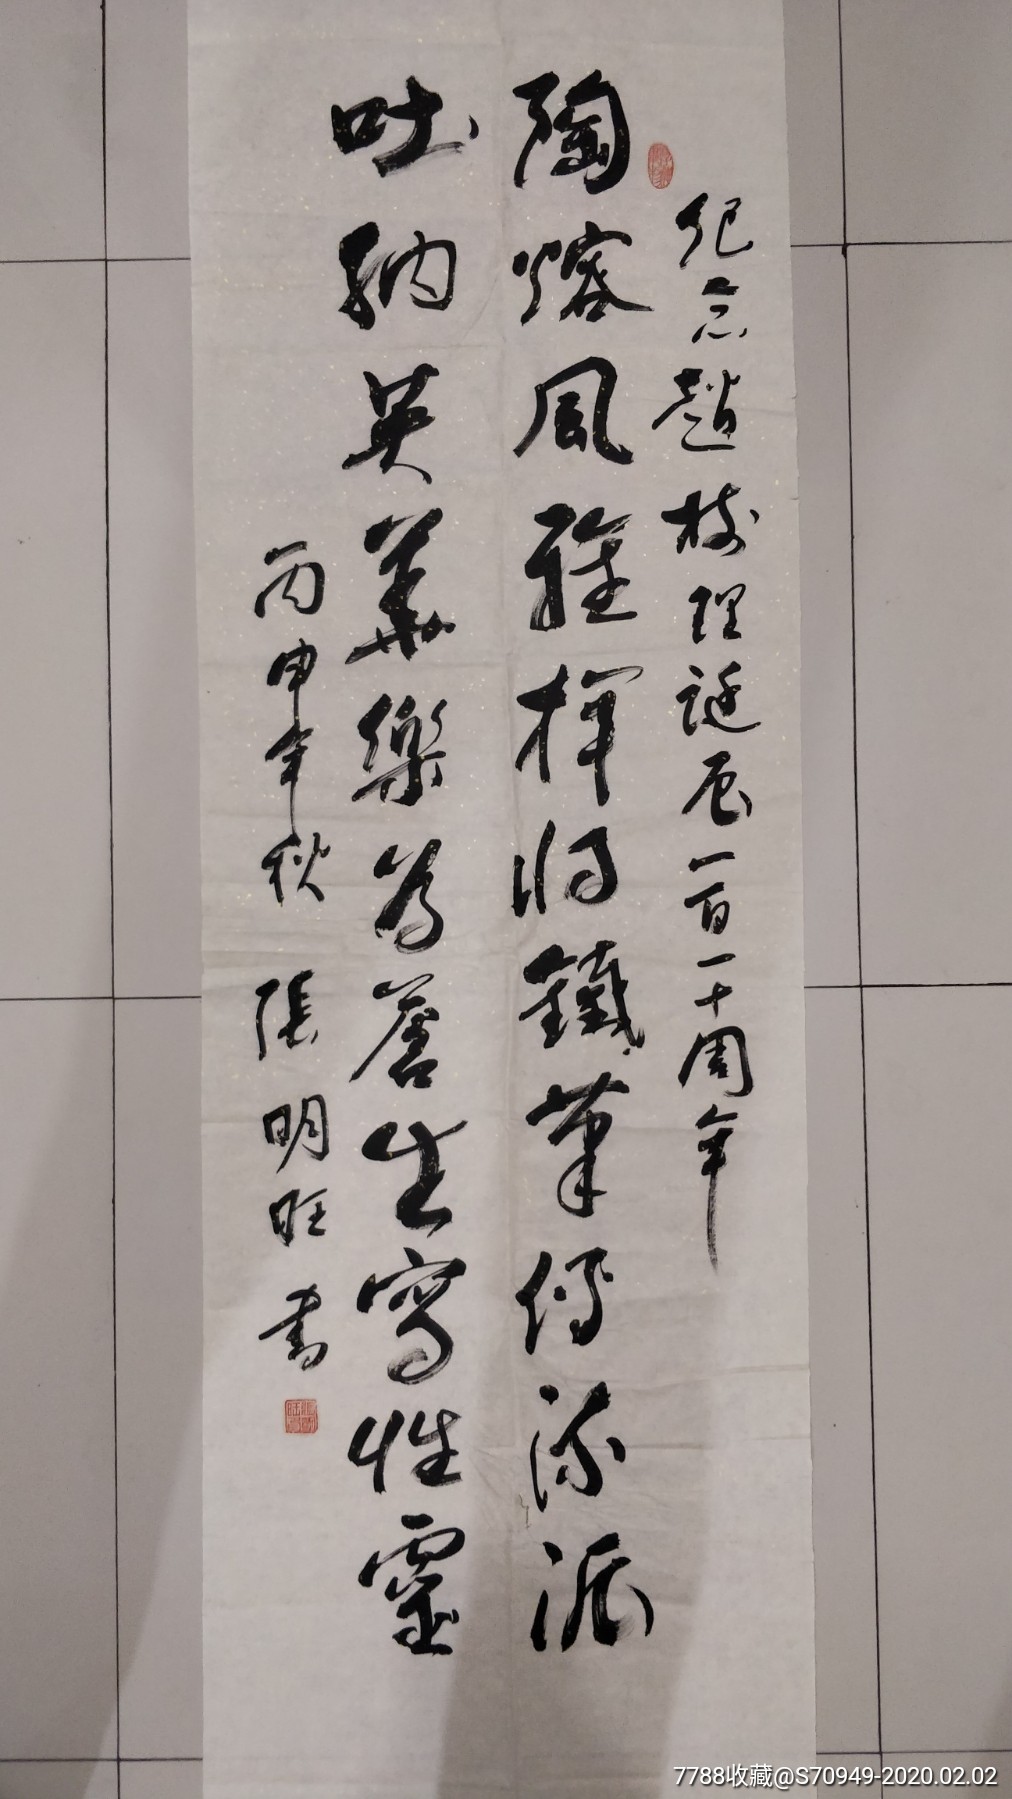 纪念趙樹理誕辰一百一十周年
陶熔風雅揮將鐵筆傳流派
吐納英華樂為蒼生寫性靈
丙申年秋 張明旺書
7788收藏@S70949-2020.02.02